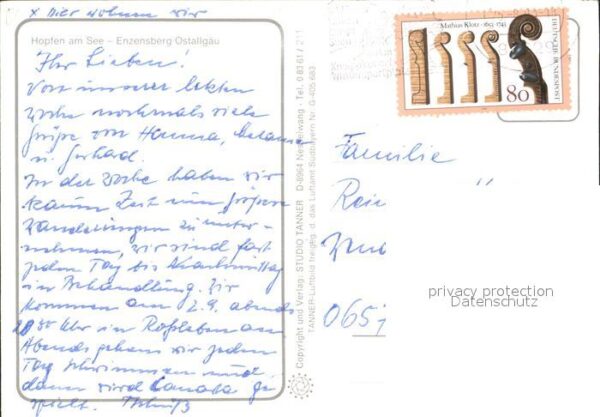 x Hier wohnen wir
Hopfen am See – Enzensberg Ostallgäu
Ihr Lieben!
Von unserer letzten
Woche nochmals viele
Grüße von Hanna,
u. Gerhard.
In der Woche haben wir
kaum Zeit zum größere
Wanderungen zu unter-
nehmen, wir sind fast
jeden Tag bis Nachmittag
in Behandlung. Wir
kommen am 2.9. abends
Uhr in Roßleben an
Abends gehen wir jeden
Tag schwimmen und
dann wird Canasta ge
spielt.
Copyright und Verlag: STUDIO TANNER D-8964 Nesselwang - Tel. 08361/211
TANNER-Luftbild freigeg. d. das Luftamt Südbayern Nr. G-405/683
Mathias Klotz · 1653-1743
DEUTSCHE BUNDESPOST
80
Familie
Rei
0651
privacy protection
Datenschutz